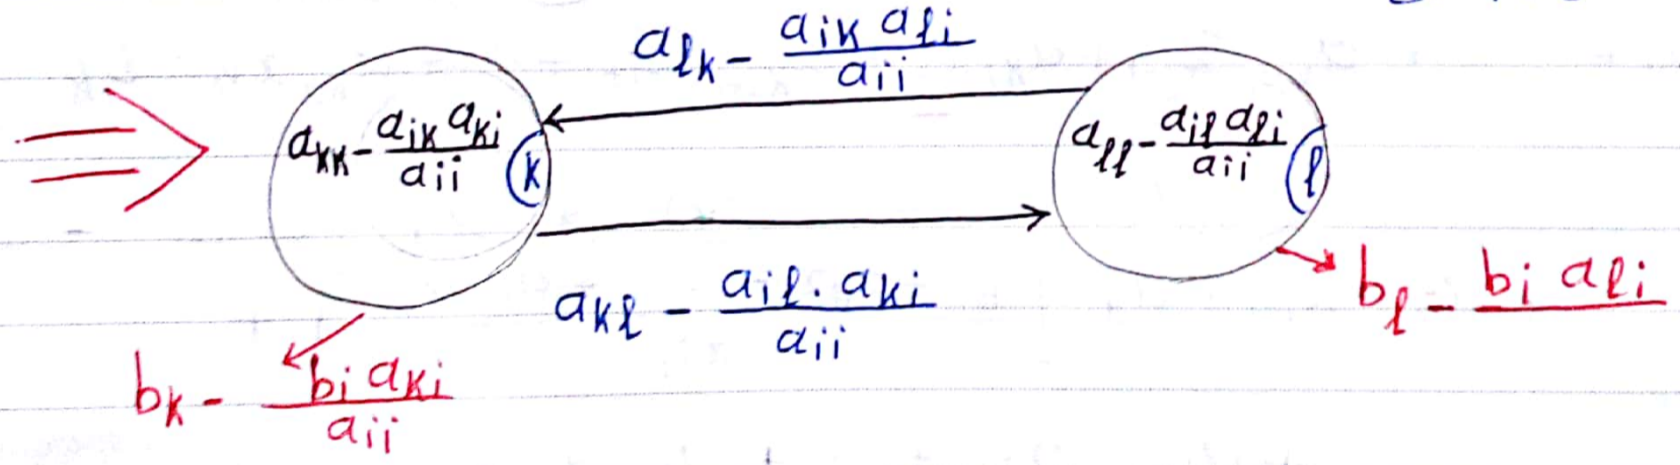 a_{lk} - \frac{a_{ik} a_{li}}{a_{ii}}
⇒
a_{kk} - \frac{a_{ik} a_{ki}}{a_{ii}}
k
a_{ll} - \frac{a_{il} a_{li}}{a_{ii}}
l
a_{kl} - \frac{a_{il} . a_{ki}}{a_{ii}}
b_l - \frac{b_i a_{li}}{}
b_k - \frac{b_i a_{ki}}{a_{ii}}